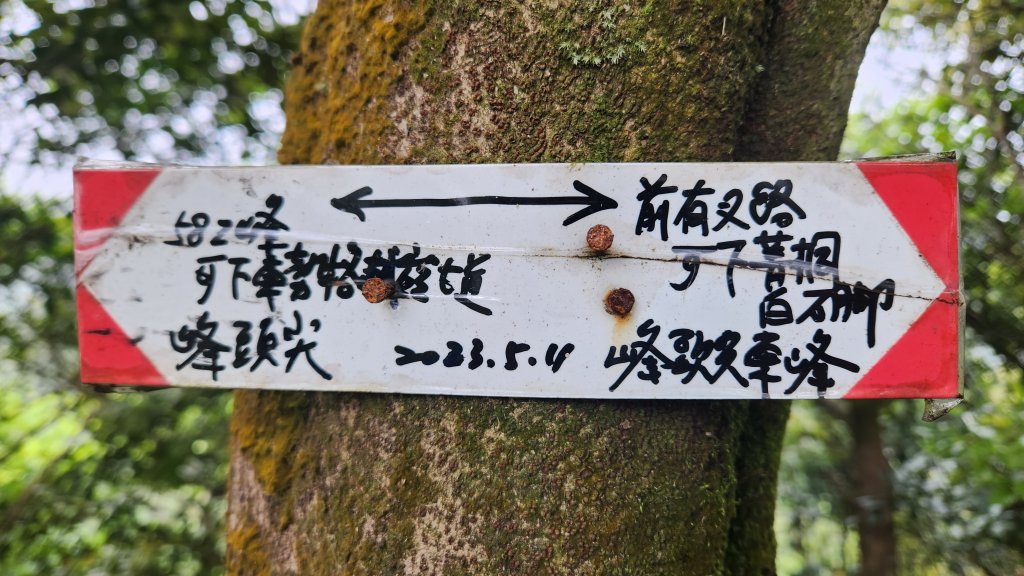 582峰
可下牽勢格
峰頭尖
2023.5.4
前有叉路
可下菁桐
白石腳
峰頭尖東峰